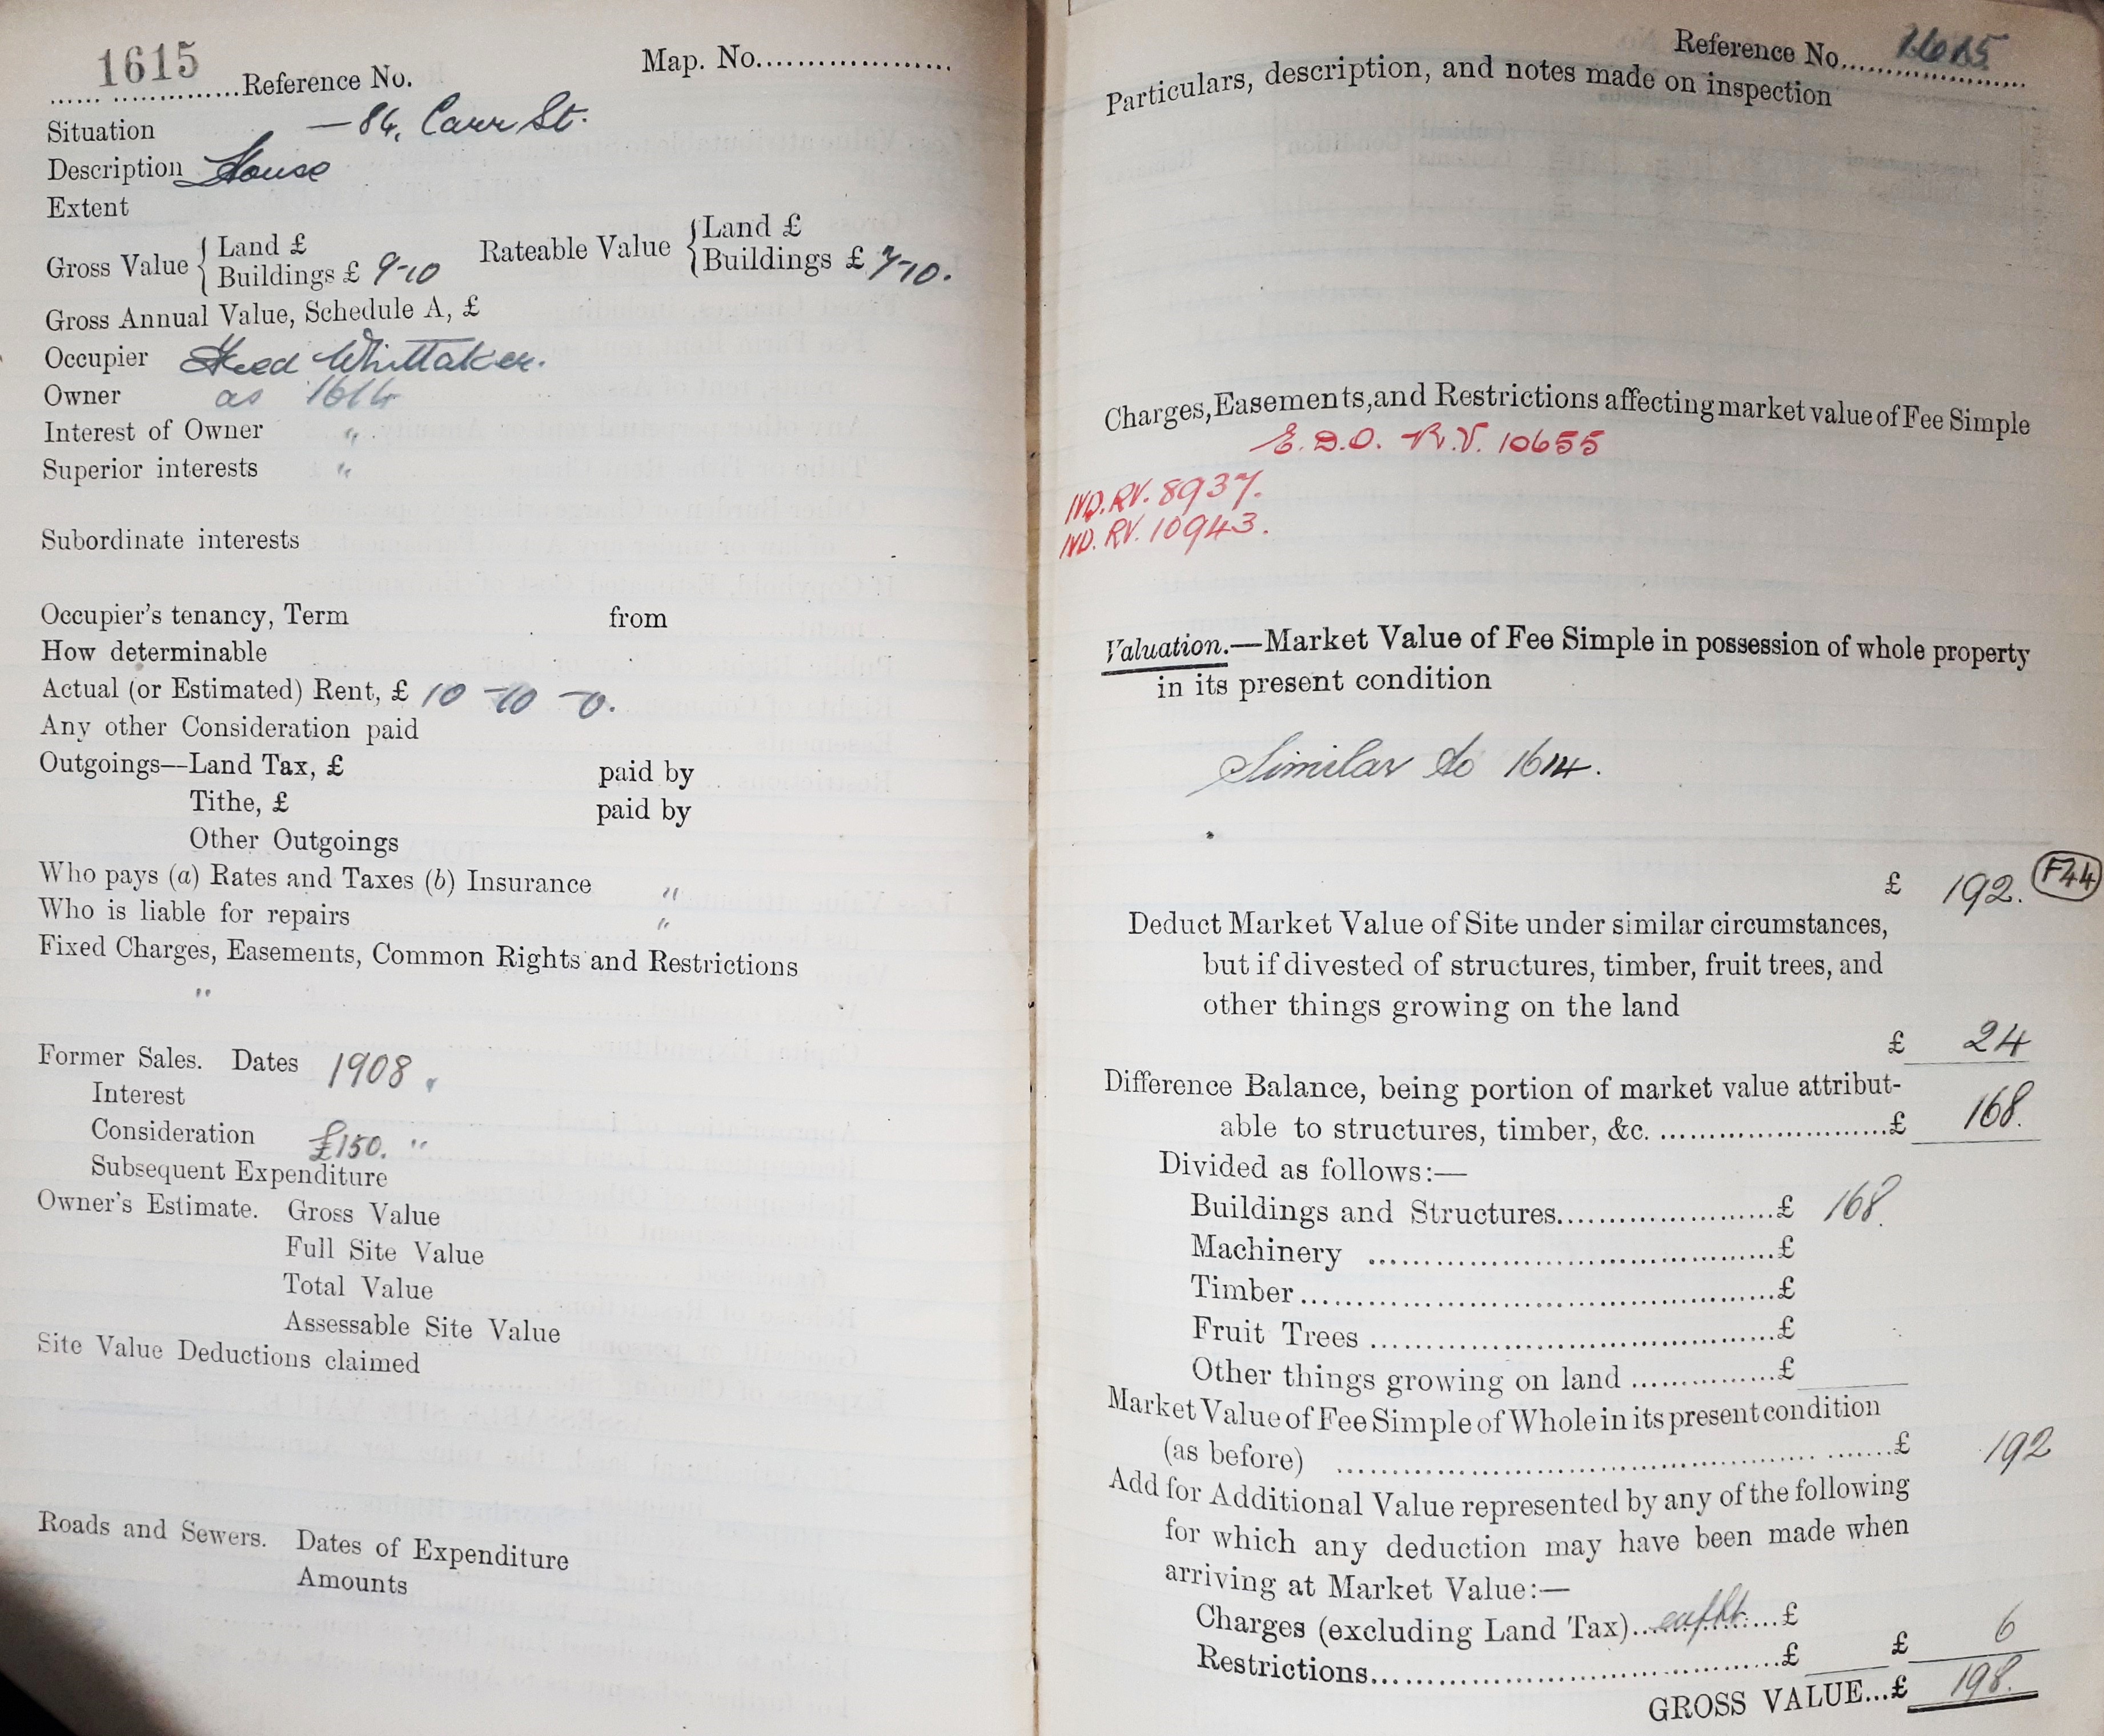 1615
...... ...............Reference No.
Map. No....................
Situation — 84, Carr St.
Description House
Extent
Gross Value { Land £
Buildings £ 9-10
Rateable Value { Land £
Buildings £ 7-10.
Gross Annual Value, Schedule A, £
Occupier Fred Whittaker.
Owner as 1614
Interest of Owner "
Superior interests "
Subordinate interests
Occupier's tenancy, Term from
How determinable
Actual (or Estimated) Rent, £ 10-10-0.
Any other Consideration paid
Outgoings—Land Tax, £ paid by
Tithe, £ paid by
Other Outgoings
Who pays (a) Rates and Taxes (b) Insurance "
Who is liable for repairs "
Fixed Charges, Easements, Common Rights and Restrictions
"
Former Sales. Dates 1908.
Interest
Consideration £150. "
Subsequent Expenditure
Owner's Estimate. Gross Value
Full Site Value
Total Value
Assessable Site Value
Site Value Deductions claimed
Roads and Sewers. Dates of Expenditure
Amounts
Reference No. 1615
Particulars, description, and notes made on inspection
Charges, Easements, and Restrictions affecting market value of Fee Simple
E.D.O. R.V. 10655
IVD. RV. 8937.
IVD. RV. 10943.
Valuation.—Market Value of Fee Simple in possession of whole property
in its present condition
Similar to 1614.
£ 192. F44
Deduct Market Value of Site under similar circumstances,
but if divested of structures, timber, fruit trees, and
other things growing on the land
£ 24
Difference Balance, being portion of market value attribut-
able to structures, timber, &c. ........................£ 168.
Divided as follows:—
Buildings and Structures......................£ 168.
Machinery ..........................................£
Timber................................................£
Fruit Trees ..........................................£
Other things growing on land ..............£
Market Value of Fee Simple of Whole in its present condition
(as before) ..........................................£ 192
Add for Additional Value represented by any of the following
for which any deduction may have been made when
arriving at Market Value:—
Charges (excluding Land Tax)..............£
Restrictions..........................................£ £ 6
GROSS VALUE...£ 198.